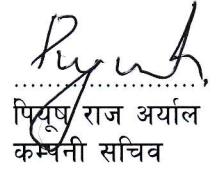 पियूष राज अर्याल
कम्पनी सचिव